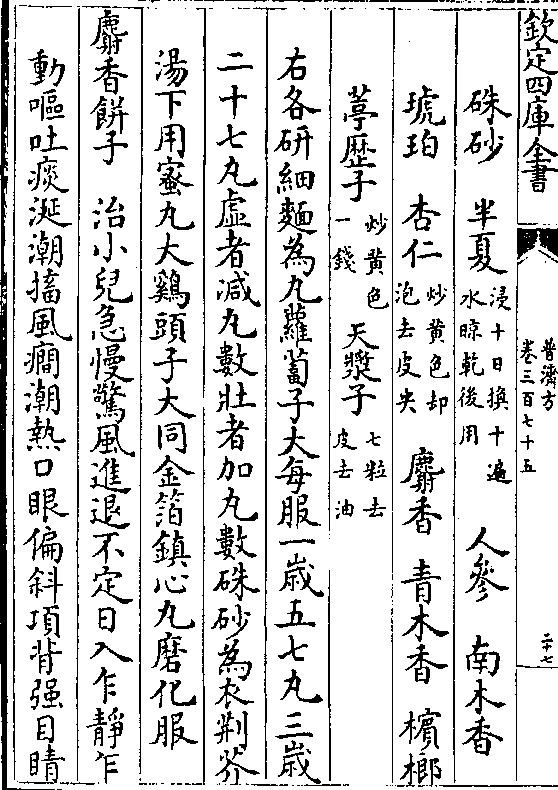 欽定四庫全書
普濟方
卷三百七十五
二十七
硃砂 半夏浸十日換十遍水晾乾後用 人參 南木香
琥珀 杏仁炒黄色却泡去皮尖 麝香 青木香 檳榔
葶歴子炒黄色一錢 天漿子七粒去皮去油
右各研細麵為丸蘿蔔子大每服一歳五七丸三歳
二十七丸虚者减丸數壯者加丸數硃砂為衣荆芥
湯下用蜜丸大鷄頭子大同金箔鎮心丸磨化服
麝香餅子 治小兒急慢驚風進退不定日入乍靜乍
動嘔吐痰涎潮搐風癎潮熱口眼偏斜項背强目睛